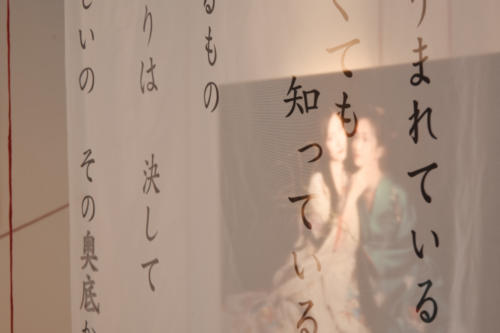 りまれている
くても
知っている
るもの
りは 決して
いの その奥底か